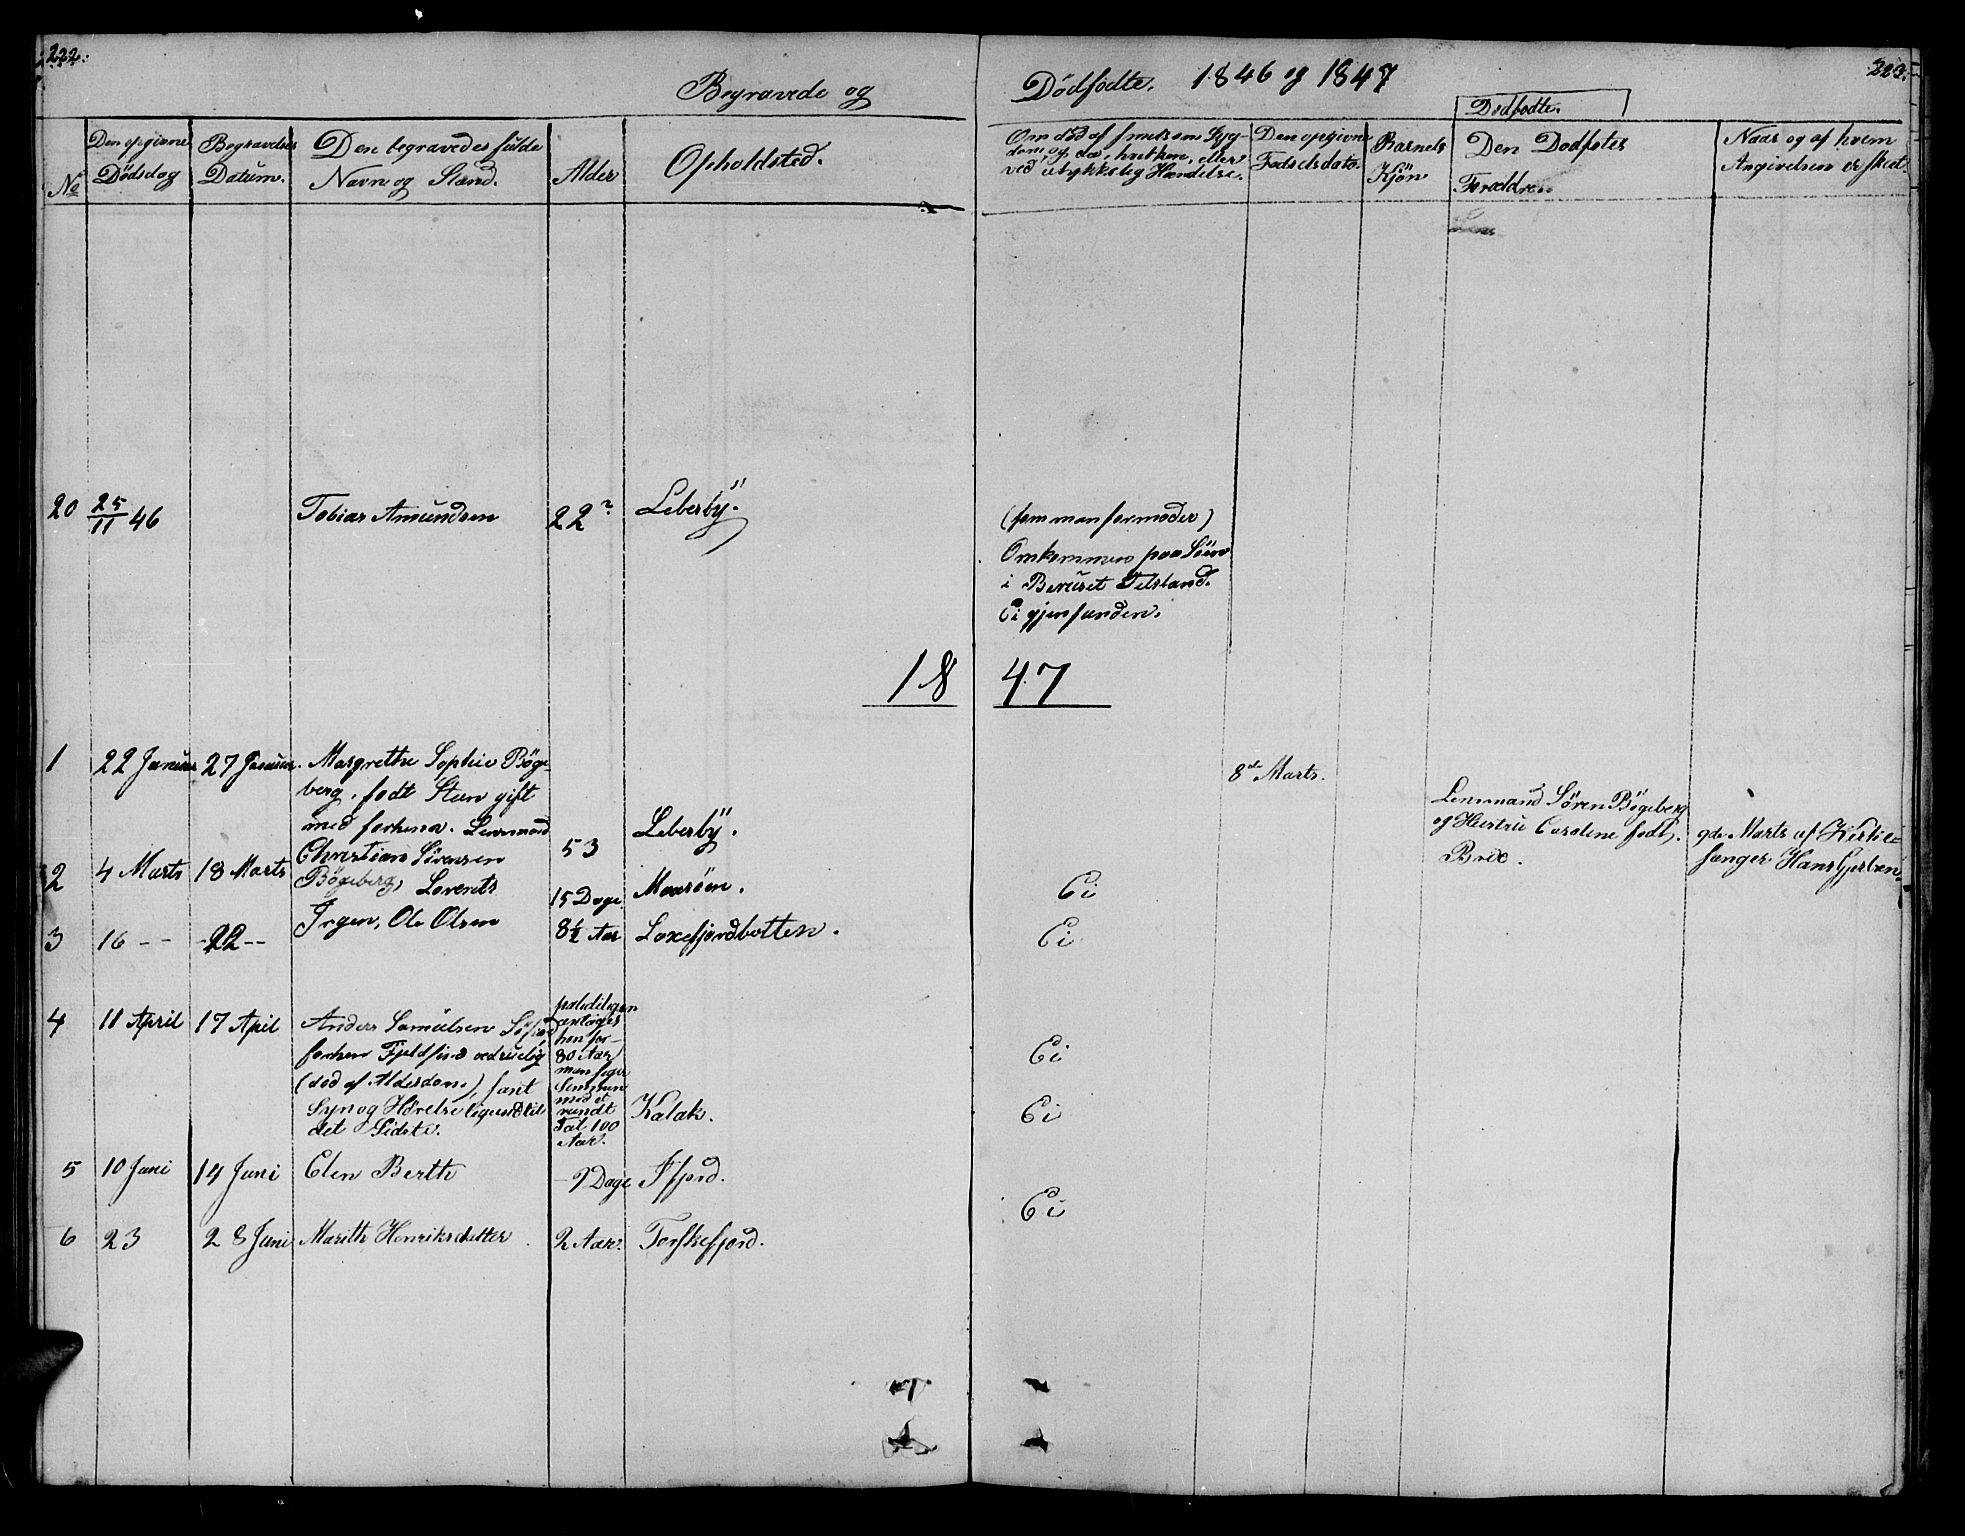 222.
Begravede og
Dödfödte. 1846 og 1847
223.
Dödfödte.
No
Den opgivne Dödsdag
Begravelses Datum.
Den begravedes fulde Navn og Stand.
Alder
Opholdsted.
Om död af smitsom Syg-
dom, og da, hvilken, eller
ved ulykkelig Hændelse.
Den opgivne
Födselsdato.
Barnets
Kjön
Den Dödfötes
Forældre
Naar og af hvem
Angivelsen er skeet.
20 25/11 46 Tobias Amundsen 22 Lebesbÿ.
(som man formoder)
Omkommen paa Söen
i Beruset Tilstand.
Ei gjenfunden.
18 47
1 22 Januar 27 Januar. Margrethe Sophie Böge-
berg, födt Steen gift
med forhenv. Lensmand
Christian Sörensen
Bögeberg, 53 Lebesbÿ.
8de Marts.
Lensmand Sören Bögeberg
og Hustru Carolene födt
Brox.
9de Marts af Kirke-
sanger Hans
2 4 Marts 18 Marts Lorents
Irgen, 15 Dage Maaröen. Ei
3 16 -- -22-- Ole Olsen 8½ Aar Laxefjordbotten. Ei
4 11 April 17 April Anders Samuelsen
forhen Fjeldfin ædruelig
(död af Alderdom), samt
Syn og Hörelse ligeindtil
det Sidste.
antages
han for
80 Aar
man siger
med et
rundt
Tal 100
Aar.
Kalak.
Ei
Ei
5 10 Juni 14 Juni Elen Berthe - 9 Dage Ifjord.
Ei
6 23 28 Juni Marith Henriksdatter 2 Aar. Torskefjord.